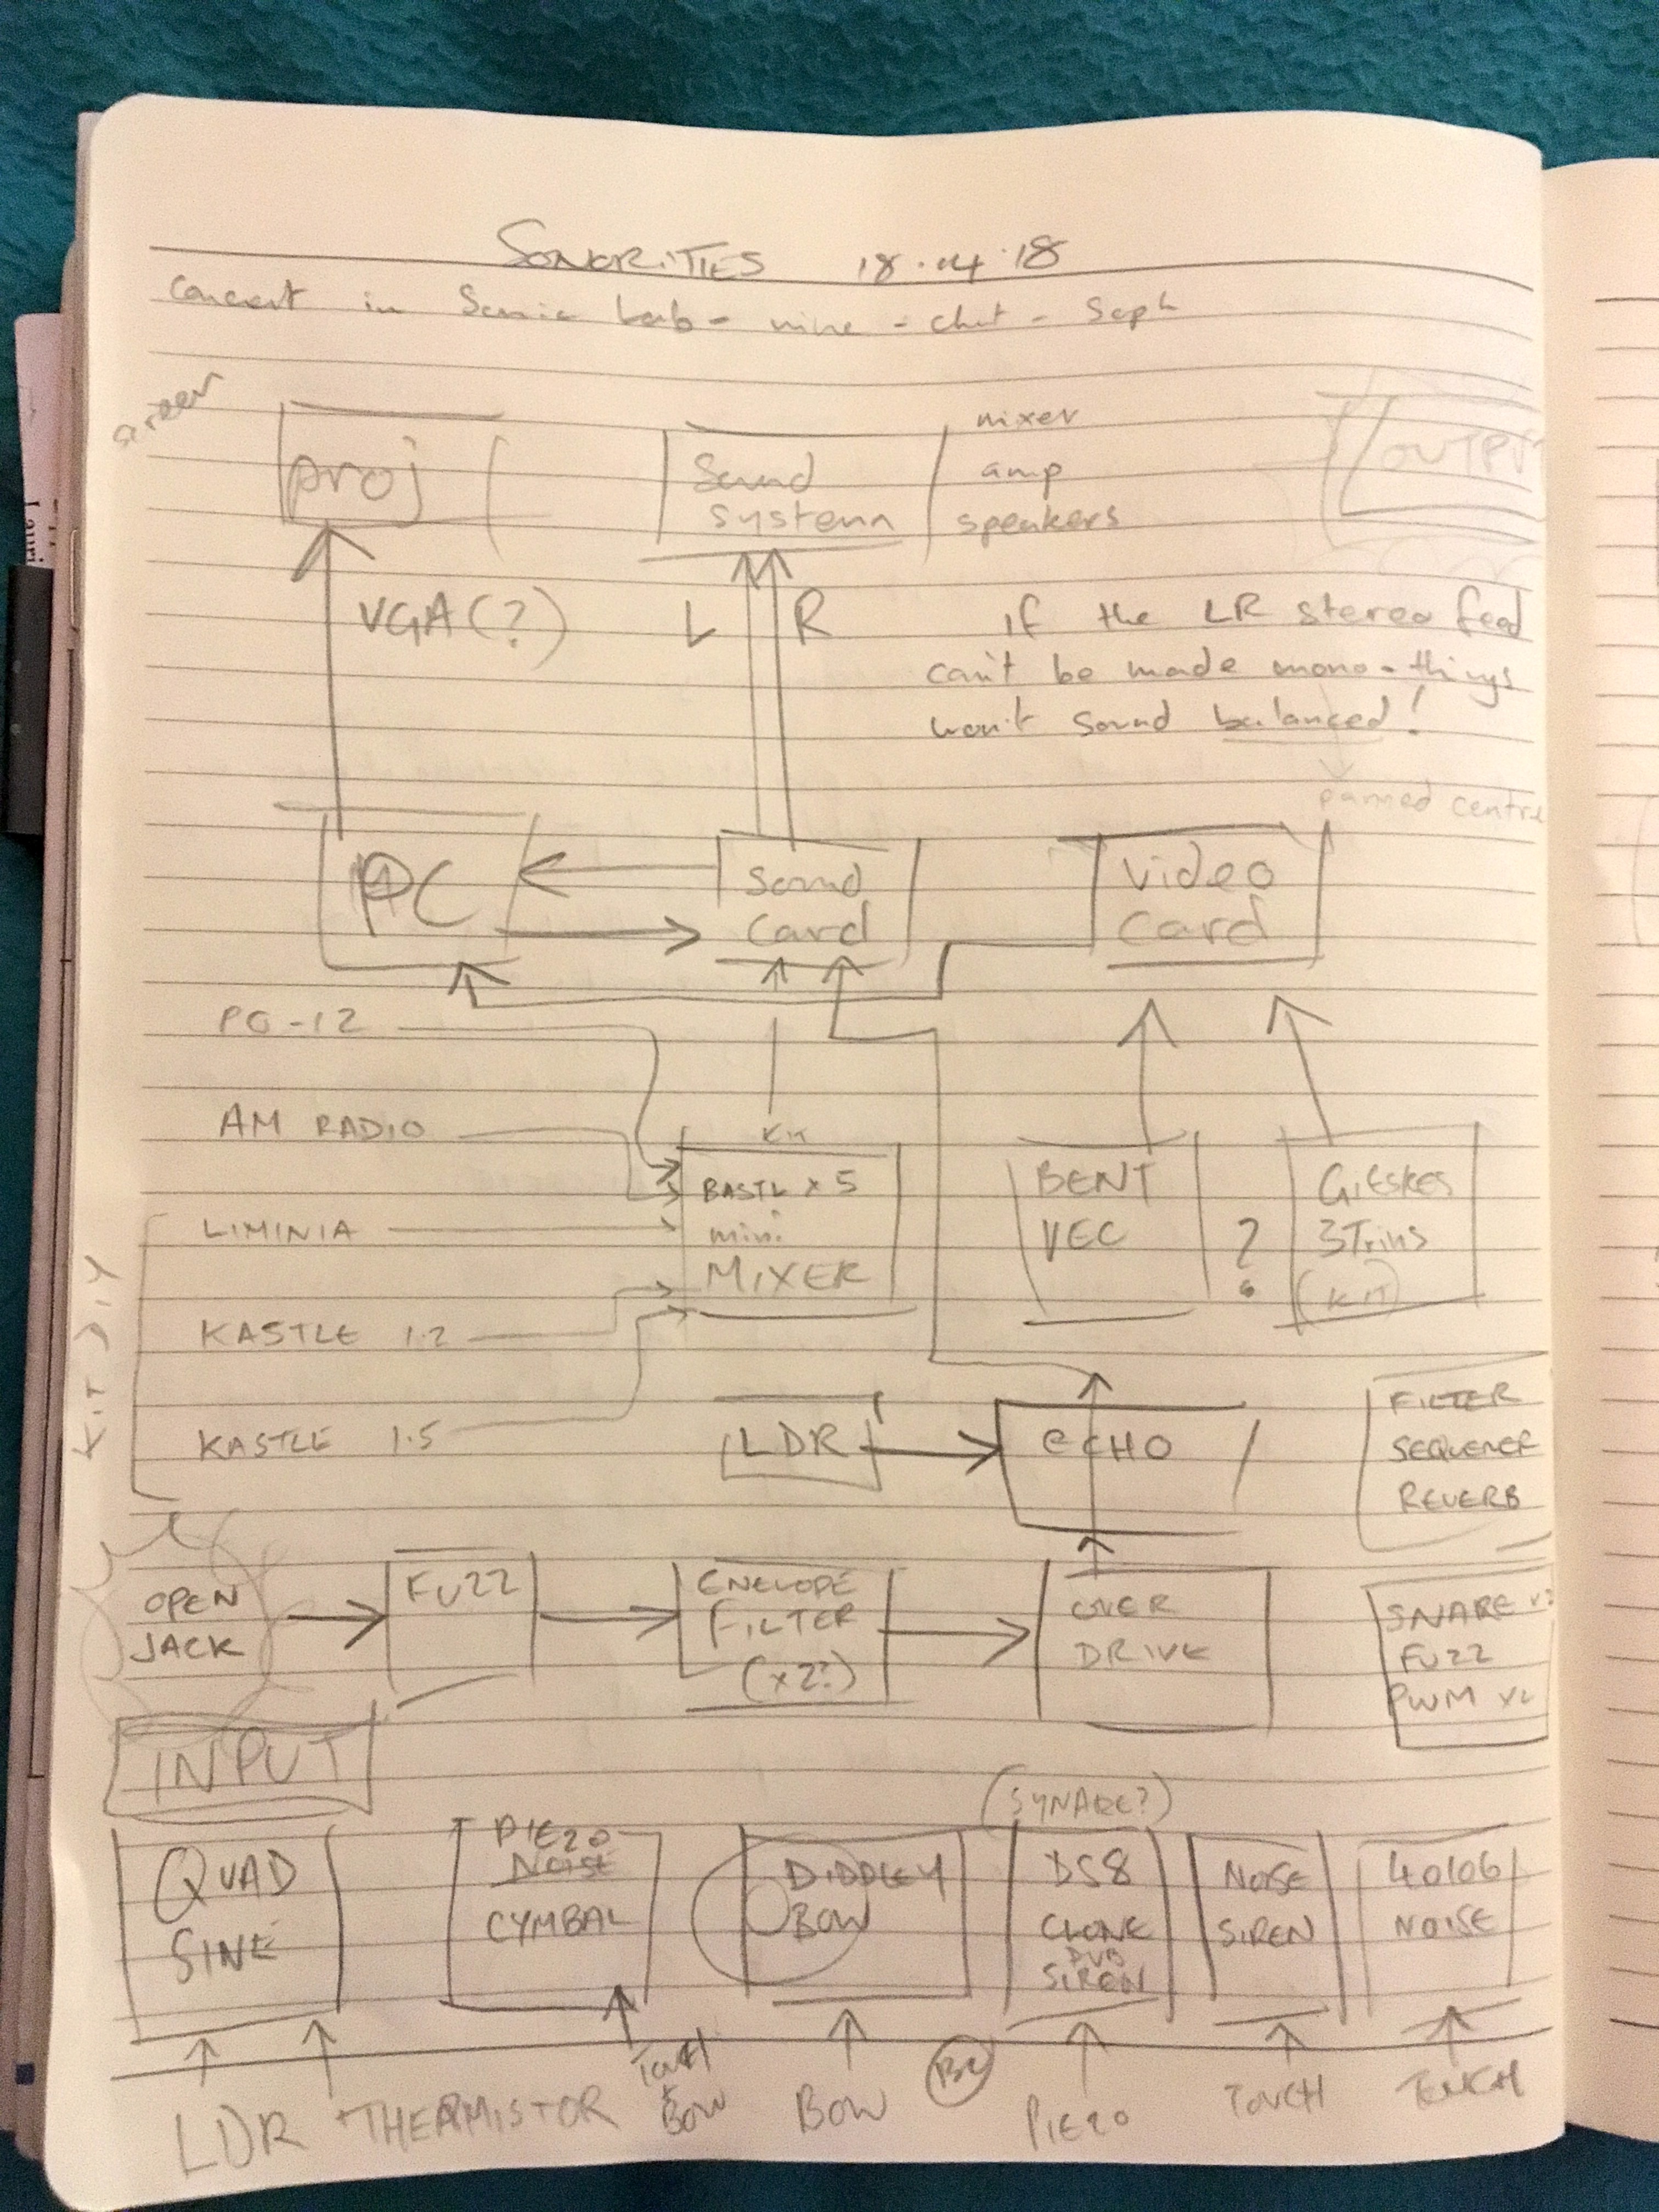 SONORITIES 18.04.18
Concert in Sonic Lab - mine - chat - Soph
screen
proj
Sound
system
mixer
amp
speakers
OUTPUT
VGA(?)
L
R
if the LR stereo feed
can't be made mono - things
won't sound balanced!
panned centre
PC
Sound
Card
Video
Card
PO-12
AM RADIO
LIMINIA
KASTLE 1.2
KASTLE 1.5
KIT DIY
KIT
BASTL x 5
mini
MIXER
BENT
VEC
?
GIESKES
3Trins
(KIT)
LDR
ECHO
FILTER
SEQUENCER
REVERB
OPEN
JACK
FUZZ
ENELOPE
FILTER
(x2?)
OVER
DRIVE
SNARE
FUZZ
PWM
INPUT
(SYNARE?)
QUAD
SINE
PIEZO
NOISE
CYMBAL
DIDDLEY
BOW
DS8
CLONE
DUB
SIREN
NOISE
SIREN
40106
NOISE
LDR + THERMISTOR
TOUCH
+
BOW
BOW
PIEZO
TOUCH
TOUCH